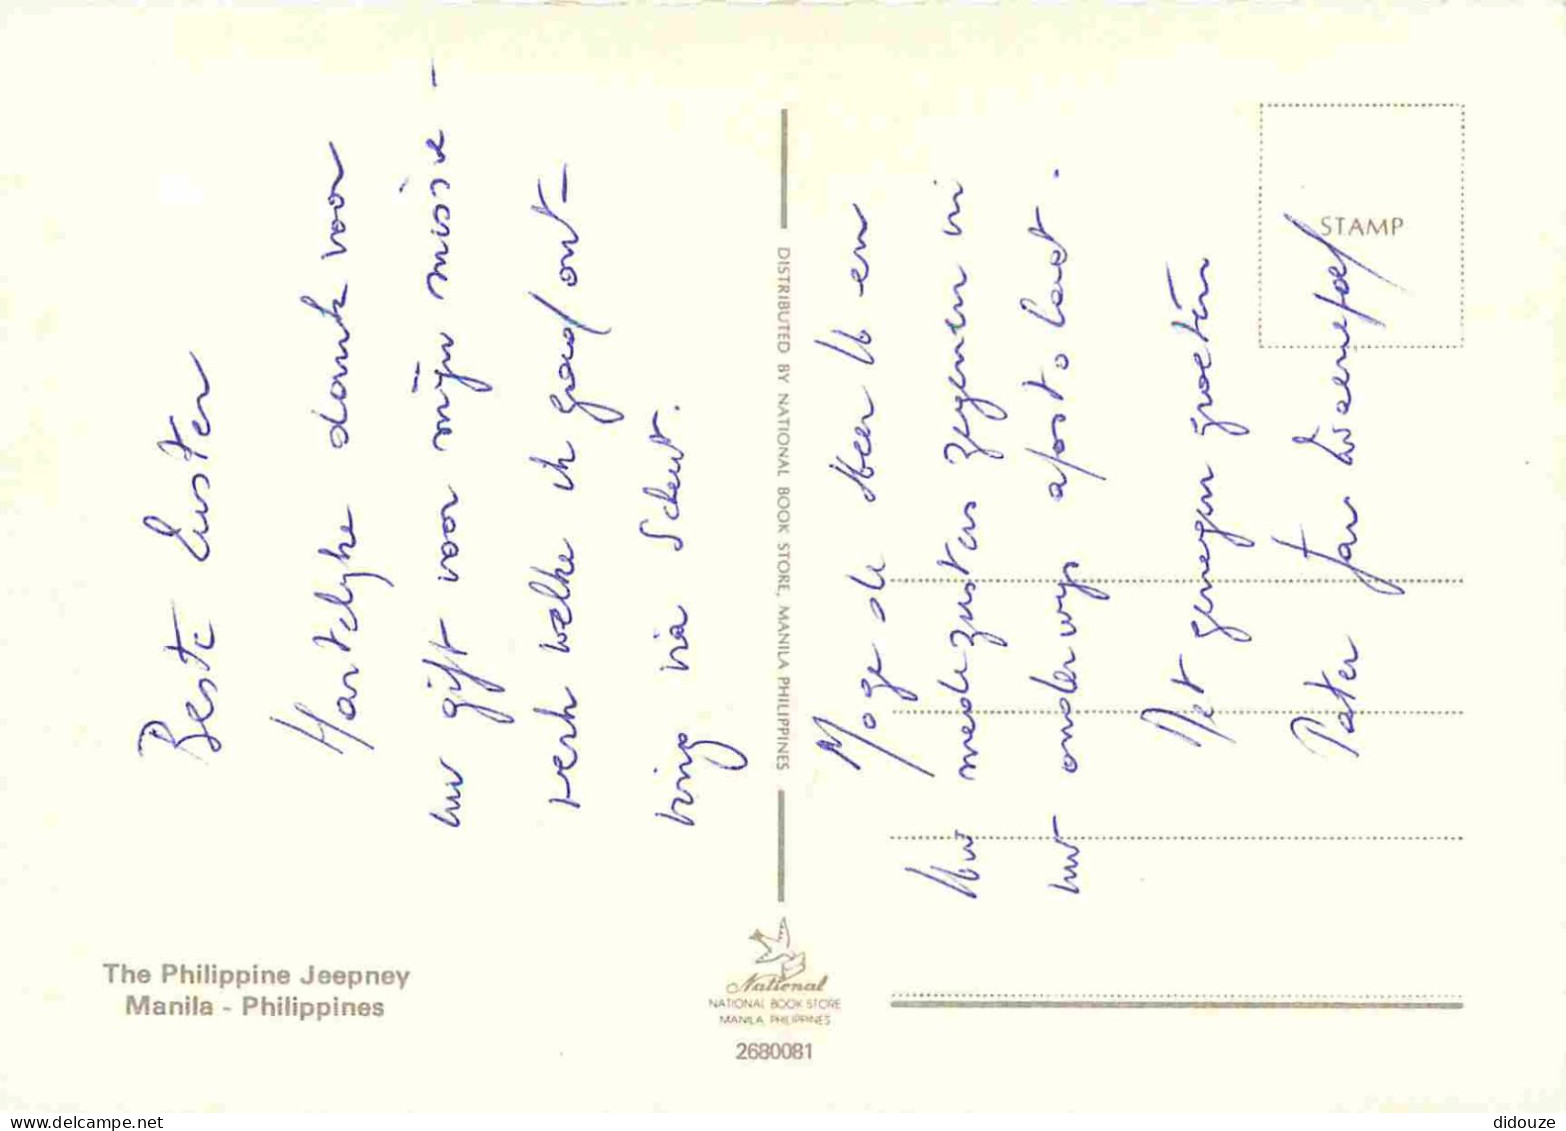 Beste Zuster
Hartelyke dank voor
uw gift voor mijn missie-
werk welke ik graag ont-
ving via Scheut.
Moge de Heer U en
Uw medezusters zegenen in
uw onderwijs apostolaat.
Met genegen groeten
Pater Jan
STAMP
DISTRIBUTED BY NATIONAL BOOK STORE, MANILA PHILIPPINES
The Philippine Jeepney
Manila - Philippines
National
NATIONAL BOOK STORE
MANILA, PHILIPPINES
2680081
didouze